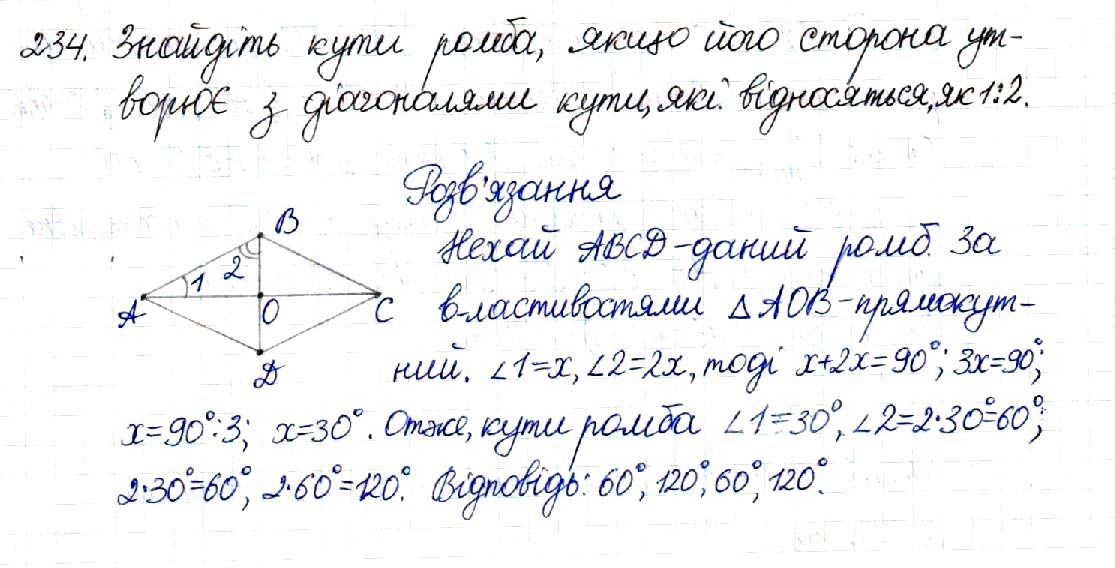 234. Знайдіть кути ромба, якщо його сторона ут-
ворює з діагоналями кути, які відносяться, як 1:2.
Розв'язання
B
Нехай ABCD-даний ромб. За
2
1
A
O
C
властивостями △AOB-прямокут-
D
ний. ∠1=x, ∠2=2x, тоді x+2x=90°; 3x=90°;
x=90°:3; x=30°. Отже, кути ромба ∠1=30°, ∠2=2·30°=60°;
2·30°=60°, 2·60°=120°. Відповідь: 60°, 120°, 60°, 120°.